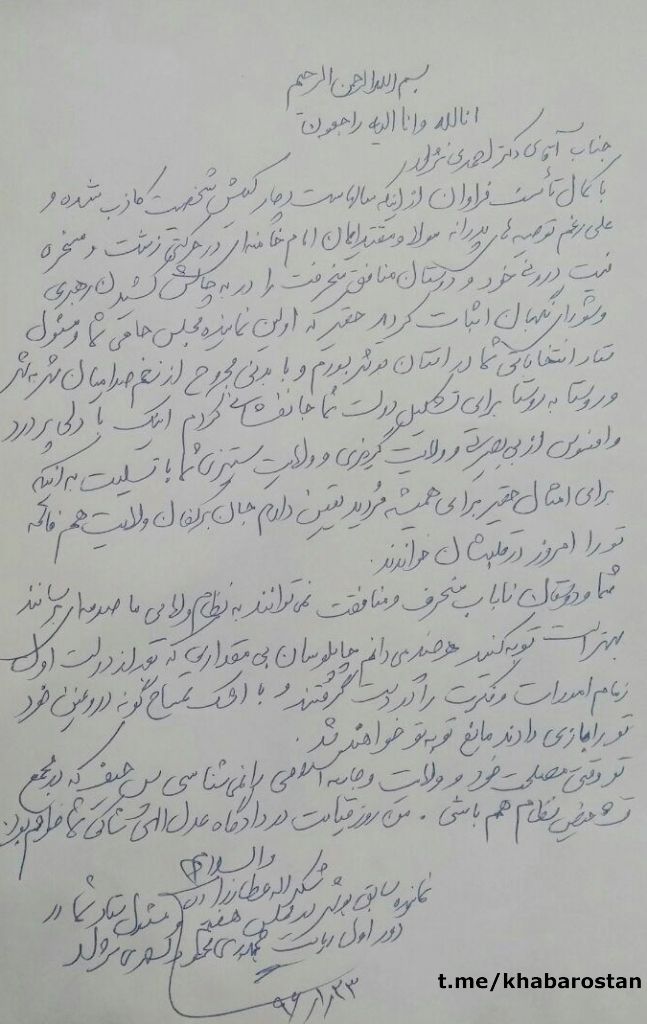 بسم الله الرحمن الرحیم
انا لله و انا الیه راجعون
جناب آقای دکتر احمدی نژاد
با کمال تأسف فراوان از اینکه سالهاست دچار کیش شخصیت کاذب شده و
علی رغم توصیه های پدرانه مولا و مقتدایمان امام خامنه ای در حرکتی زشت و مسخره
نیت درونی خود و دوستان منافق منحرفت را در به چالش کشیدن رهبری
و شورای نگهبان اثبات کردید حقیر که اولین نماینده مجلس حامی شما و مسئول
ستاد انتخاباتی شما در استان بوشهر بودم و با بدنی مجروح از زخم صدامیان شهر به شهر
و روستا به روستا برای تشکیل دولت شما جانفشانی کردم اینک با دلی پر درد
و افسوس از بی بصیرتی و ولایت گریزی و ولایت ستیزی شما با تسلیت به اینکه
برای امثال حقیر برای همیشه مُردید یقین دارم جان برکفان ولایت هم فاتحه
تو را امروز در قلبشان خواندند.
شما و دوستان ناباب منحرف و منافقت نمی توانند به نظام ولایی ما صدمه ای برسانند
بهتر است توبه کنید هر چند می دانم چاپلوسان بی مقداری که بعد از دولت اول
زمام امورات و فکرت را در دست گرفتند و با اشک تمساح گونه دروغین خود
تو را بازی دادند مانع توبه تو خواهند شد.
تو وقتی مصلحت خود و ولایت و جامعه اسلامی را نمی شناسی پس حیف که در مجمع
تشخیص نظام هم باشی. من روز قیامت در دادگاه عدل الهی شاکی شما خواهم بود.
والسلام
شکراله عطارزاده
نماینده سابق بوشهر در مجلس هفتم و مسئول ستاد شما در
دور اول ریاست جمهوری محمود احمدی نژاد
۹۶/۱/۲۳
t.me/khabarostan